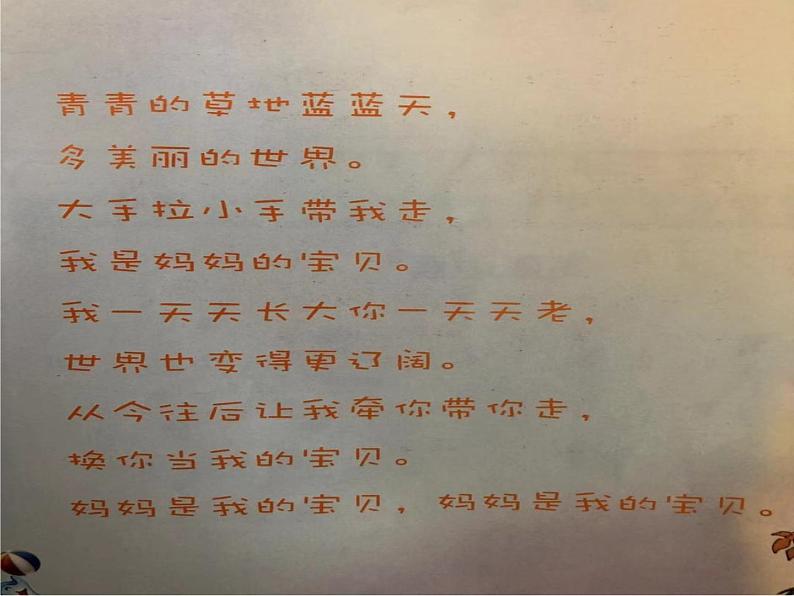 青青的草地蓝蓝天，
多美丽的世界。
大手拉小手带我走，
我是妈妈的宝贝。
我一天天长大你一天天老，
世界也变得更辽阔。
从今往后让我牵你带你走，
换你当我的宝贝。
妈妈是我的宝贝，妈妈是我的宝贝。